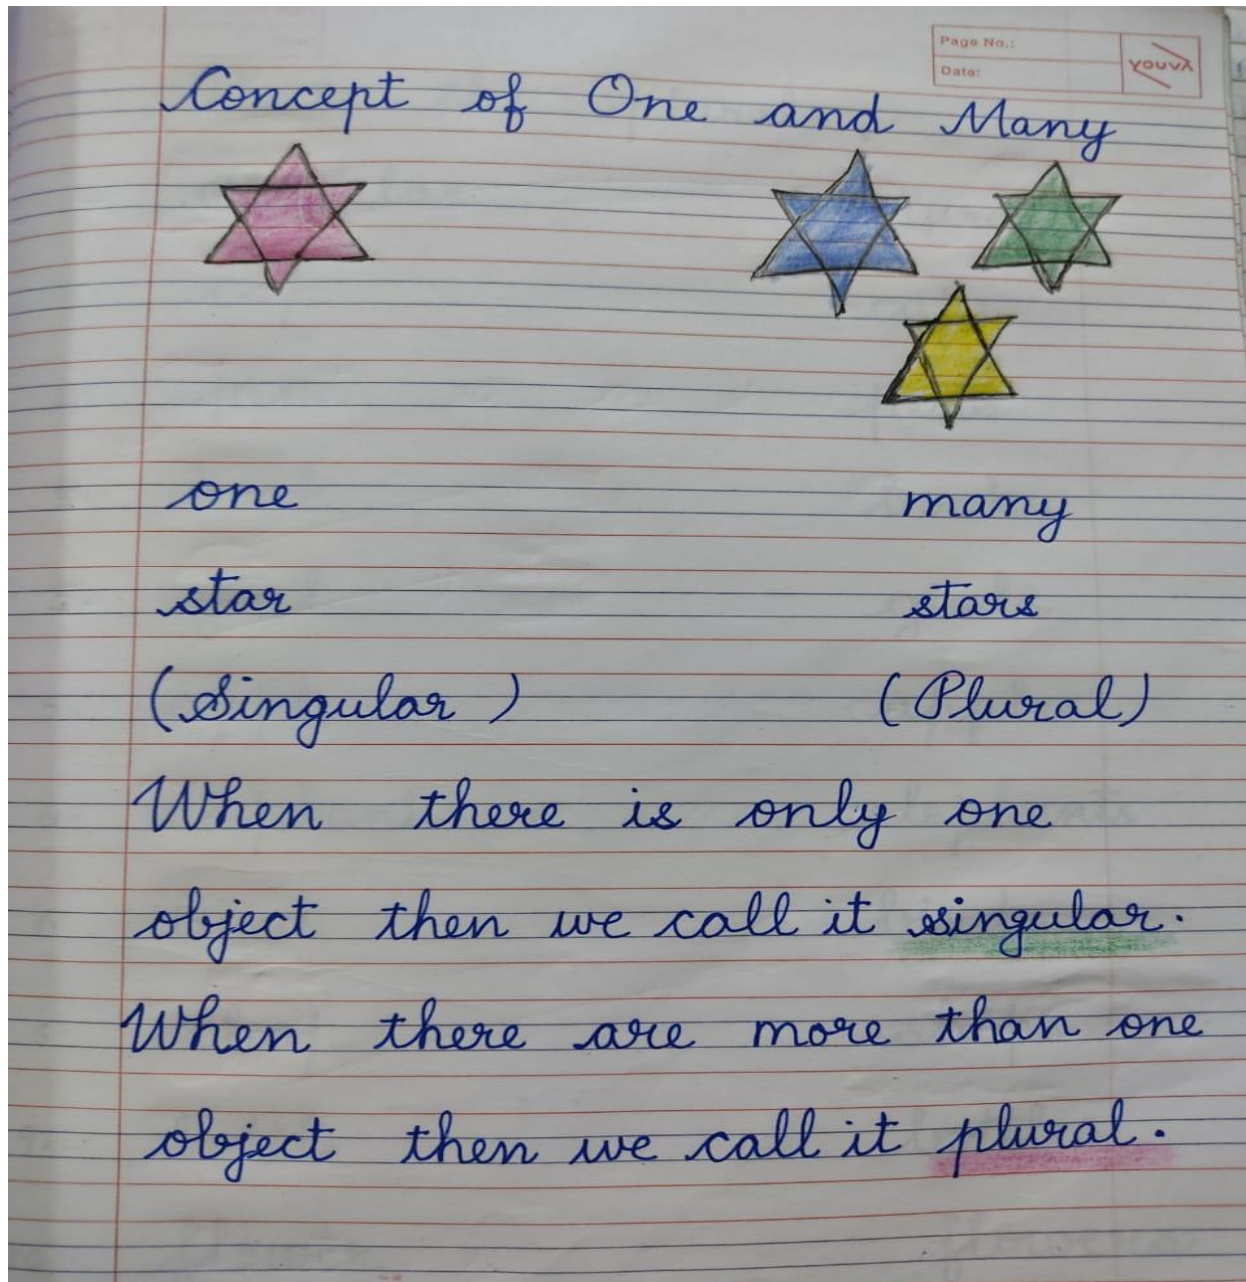 Page No.:
Date:
YOUVA
Concept of One and Many
one many
star stars
(Singular) (Plural)
When there is only one
object then we call it singular.
When there are more than one
object then we call it plural.